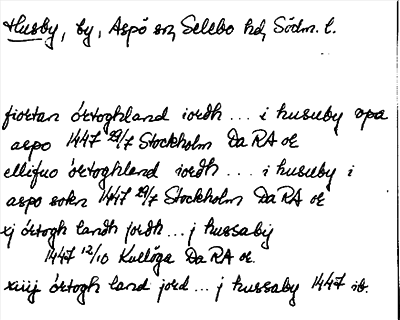 Husby, by, Aspö sn, Selebo hd, Södm. l.
fiortan örtoghland iordh ... i husuby opa
aspo 1447 29/7 Stockholm Da RA or
ellifuo örtoghland iordh .... i husuby i
aspo sokn 1447 29/7 Stockholm Da RA or
xj örtogh landh jordh ... j hussabij
1447 12/10 Kulløge Da RA or.
xiiij örtogh land jord ... j hussaby 1447 ib.